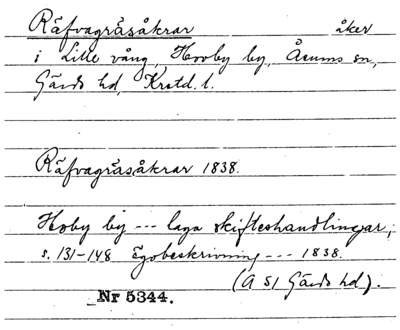 Räfvagräsåkrar åker
i Lille vång, Hovby by, Åsums sn,
Gärds hd, Krstd. l.
Räfvagräsåkrar 1838.
Hoby by --- laga skifteshandlingar,
s. 131-148 Egobeskrivning --- 1838.
(A 51 Gärds hd).
Nr 5344.